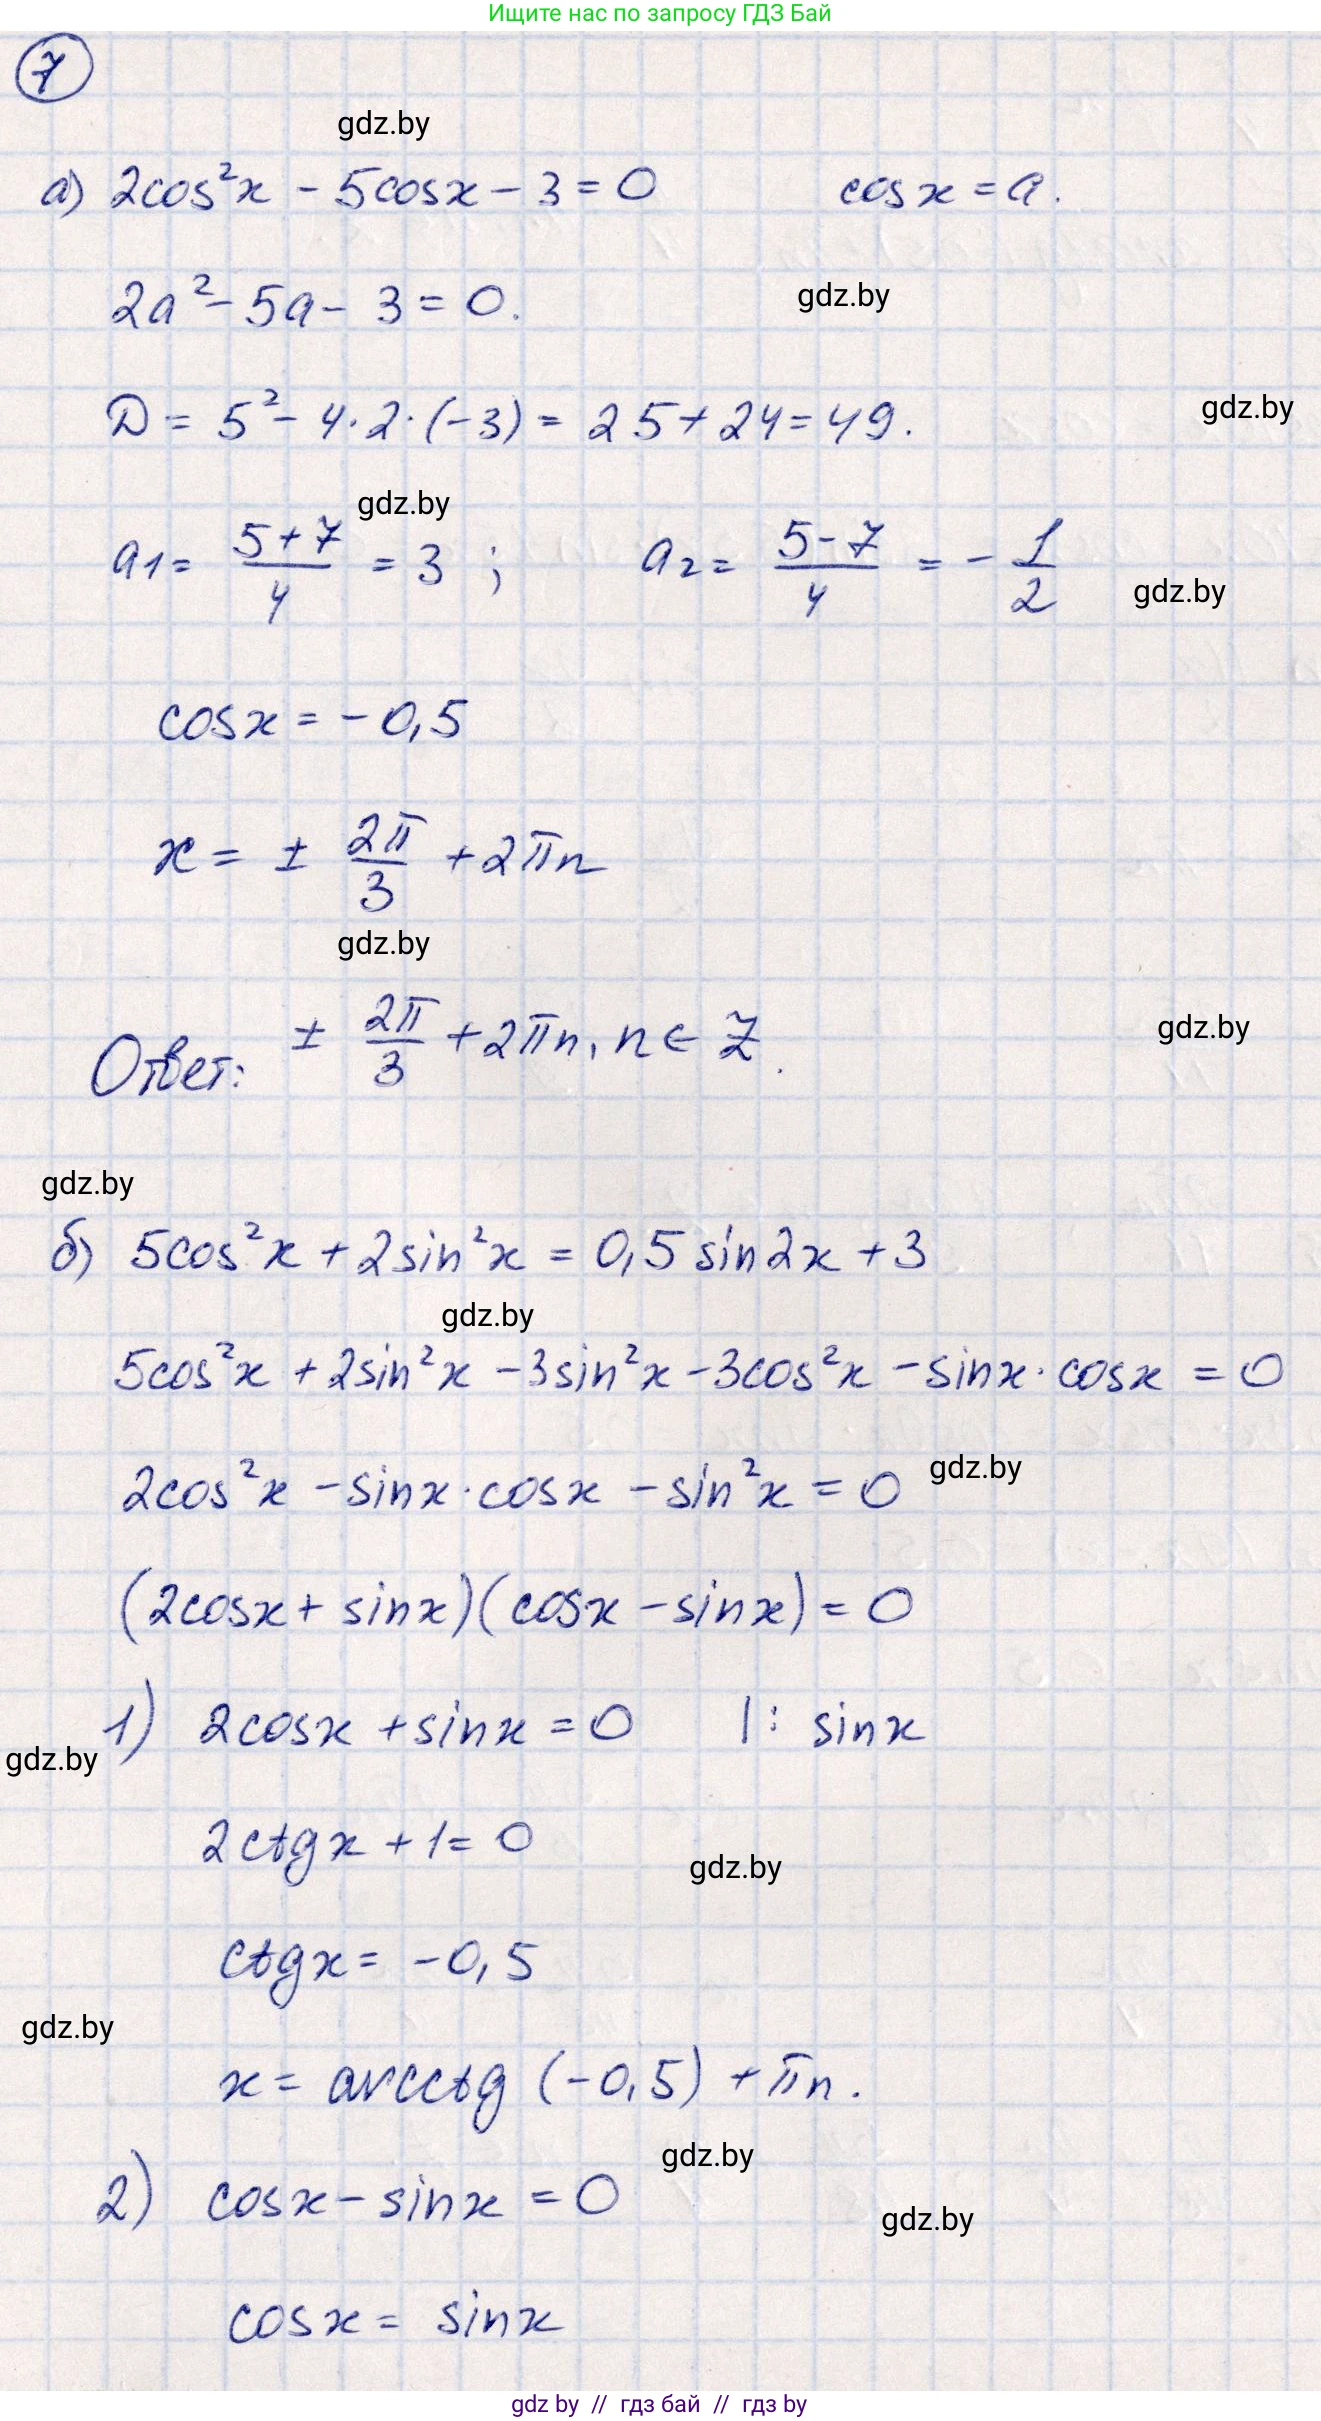 Ищите нас по запросу ГДЗ Бай
7
gdz.by
а) 2cos²x - 5cosx - 3 = 0     cosx = a.
2a² - 5a - 3 = 0.
gdz.by
D = 5² - 4·2·(-3) = 25 + 24 = 49.
gdz.by
gdz.by
a₁ = (5+7)/4 = 3 ;     a₂ = (5-7)/4 = - 1/2
gdz.by
cosx = -0,5
x = ± 2π/3 + 2πn
gdz.by
Ответ: ± 2π/3 + 2πn, n ∈ Z.
gdz.by
gdz.by
б) 5cos²x + 2sin²x = 0,5 sin2x + 3
gdz.by
5cos²x + 2sin²x - 3sin²x - 3cos²x - sinx · cosx = 0
2cos²x - sinx · cosx - sin²x = 0
gdz.by
(2cosx + sinx)(cosx - sinx) = 0
1) 2cosx + sinx = 0     |: sinx
gdz.by
2ctgx + 1 = 0
gdz.by
ctgx = -0,5
gdz.by
x = arcctg (-0,5) + πn.
gdz.by
2) cosx - sinx = 0
gdz.by
cosx = sinx
gdz by // гдз бай // гдз by